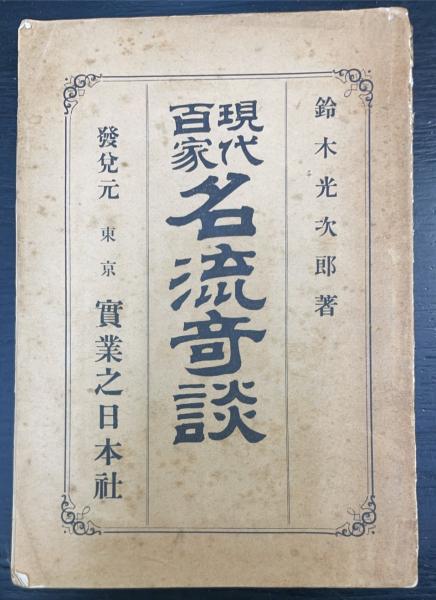 鈴木光次郎著
現代
百家
名流奇談
發兌元 東京 實業之日本社